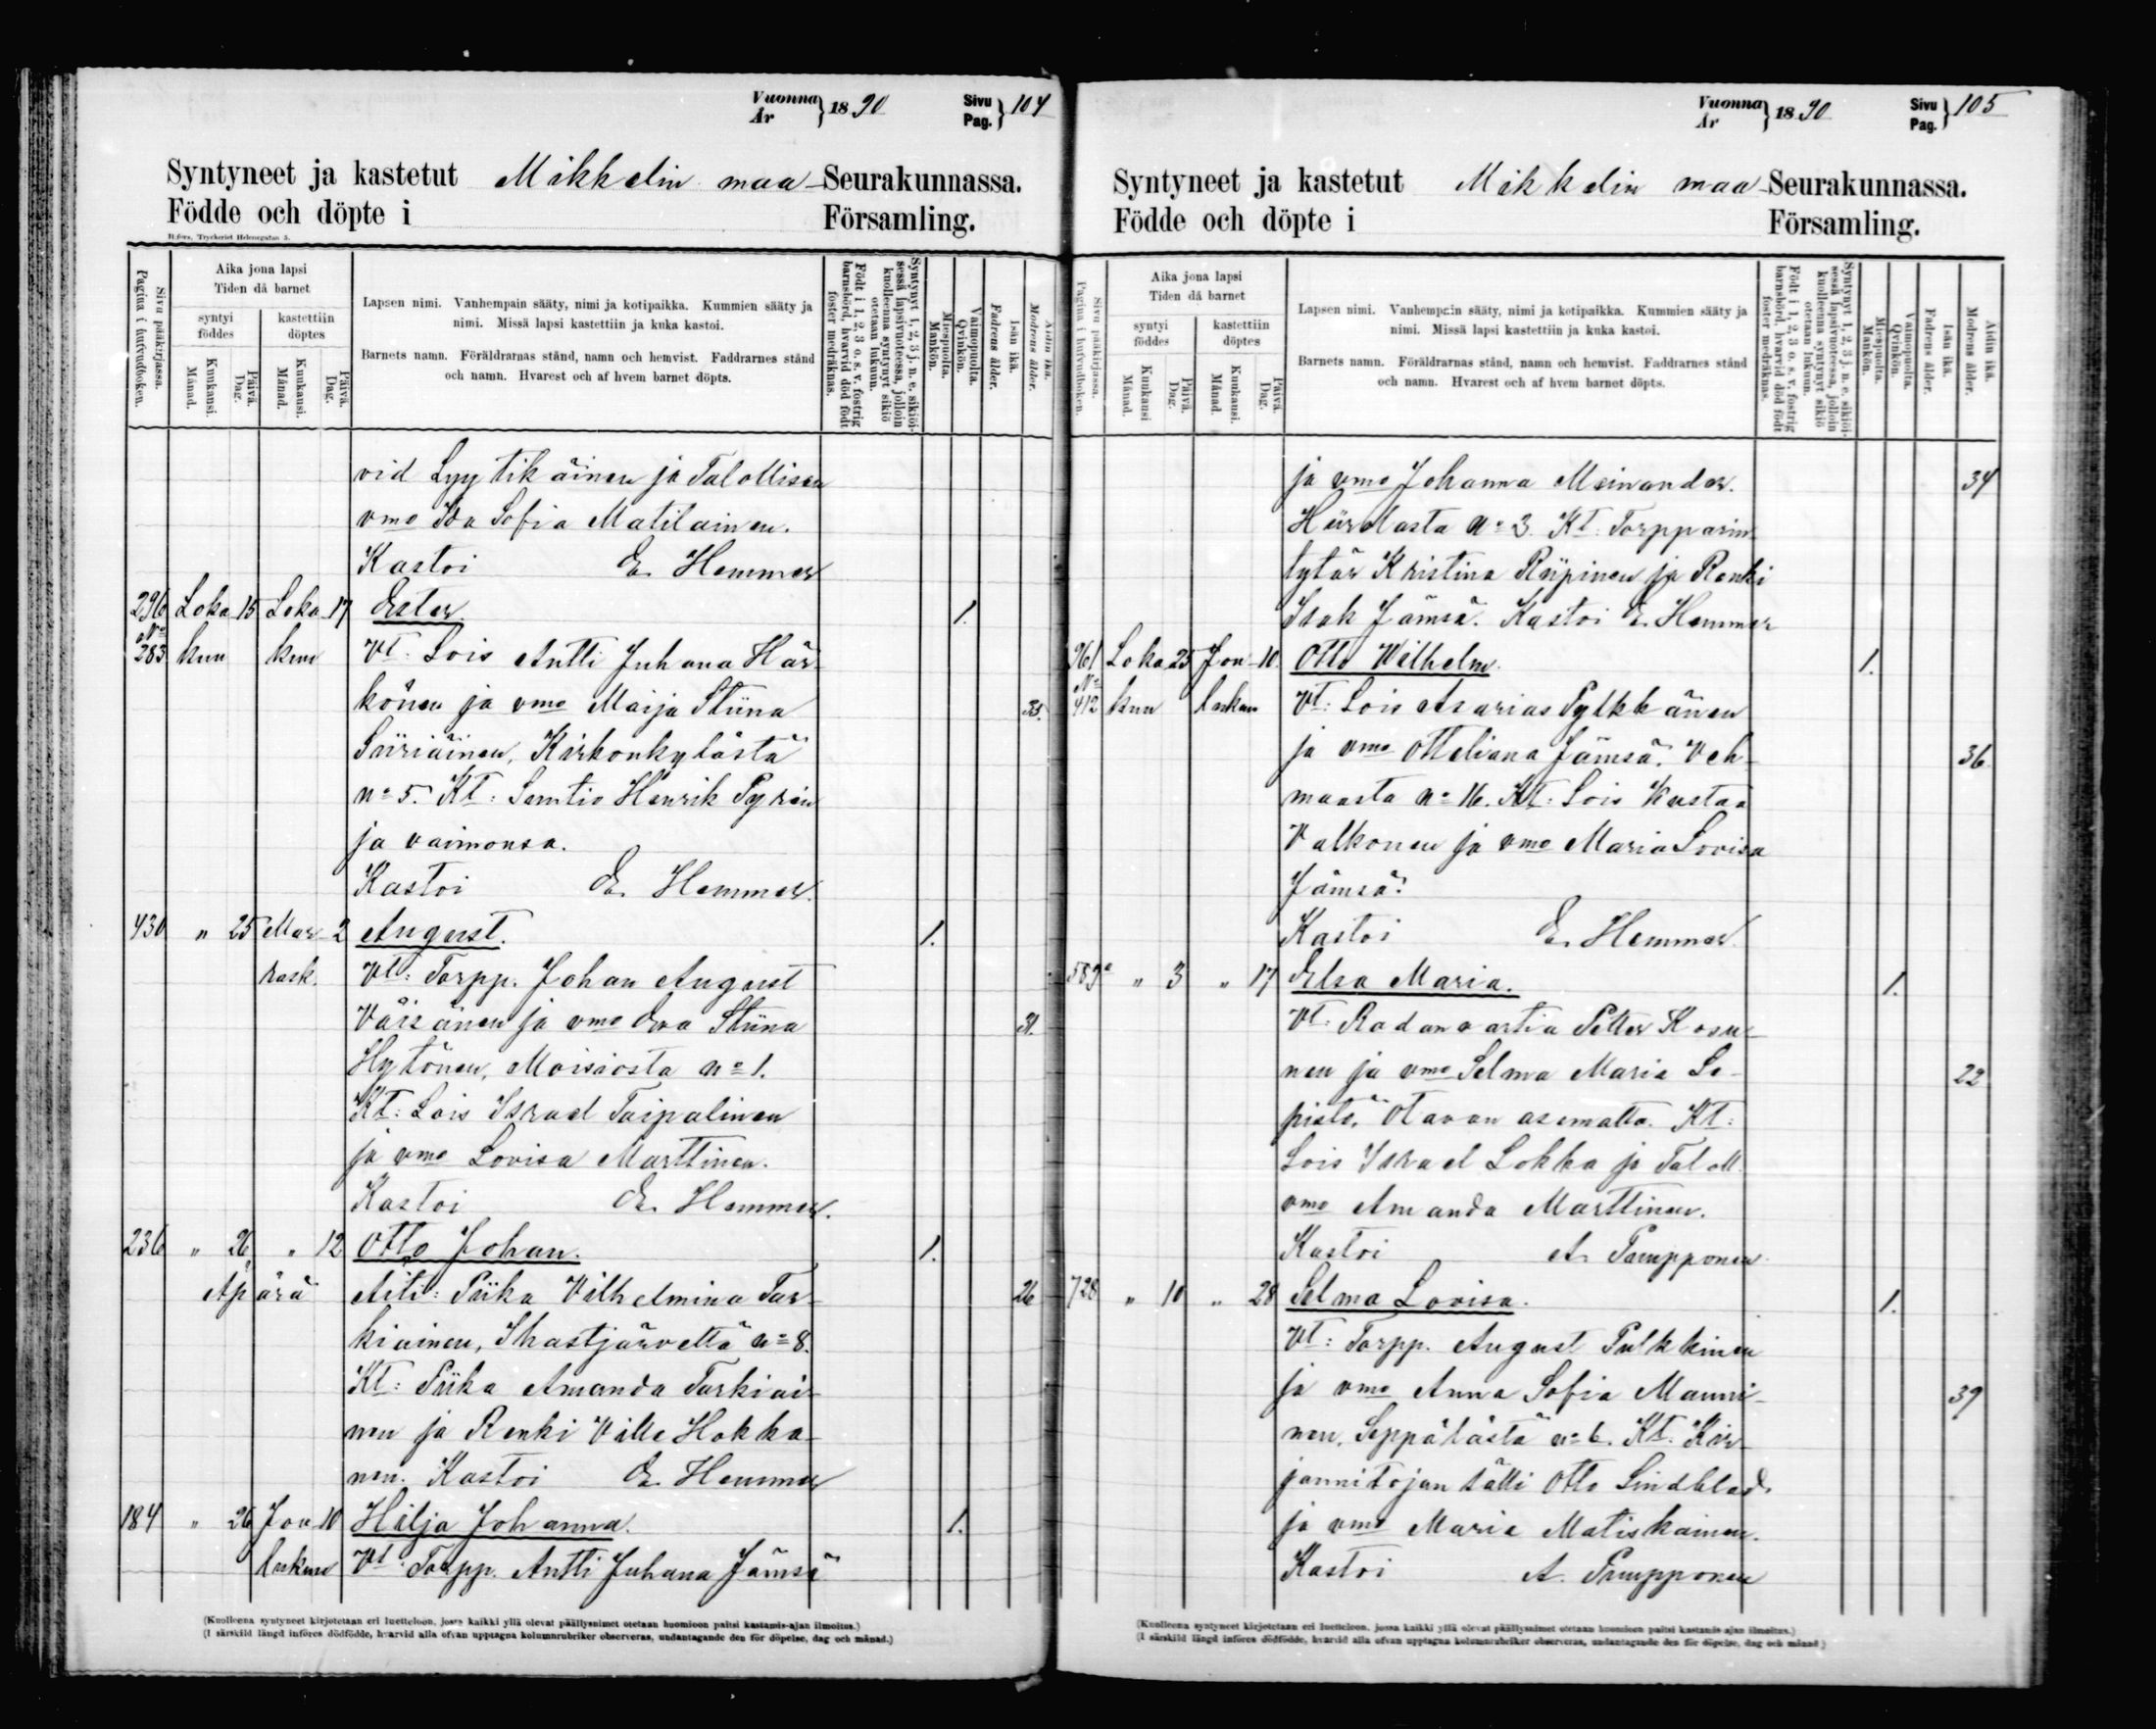 Vuonna
År } 1890 Sivu
Pag. } 104
Syntyneet ja kastetut Mikkelin maa-Seurakunnassa.
Födde och döpte i Församling.
H:fors, Tryckeriet Helenegatan 3.
Sivu pääkirjassa.
Pagina i hufvudboken.
Aika jona lapsi
Tiden då barnet
syntyi
föddes
kastettiin
döptes
Kuukausi
Månad.
Päivä.
Dag.
Kuukausi.
Månad.
Päivä.
Dag.
Lapsen nimi. Vanhempain sääty, nimi ja kotipaikka. Kummien sääty ja
nimi. Missä lapsi kastettiin ja kuka kastoi.
Barnets namn. Föräldrarnas stånd, namn och hemvist. Faddrarnes stånd
och namn. Hvarest och af hvem barnet döpts.
Syntynyt 1, 2, 3 j. n. e. sikiöi-
sessä lapsivuoteessa, jolloin
kuolleenna syntynyt sikiö
otetaan lukuun.
Född i 1, 2, 3 o. s. v. fostrig
barnsbörd, hvarvid död född
foster medräknas.
Miespuolta.
Mankön.
Vaimopuolta.
Qvinkön.
Isän ikä.
Fadrens ålder.
Äidin ikä.
Modrens ålder.
vid Lyytikäinen ja Talollisen
vmo Ida Sofia Matilainen.
Kastoi E. Hemmer
296 Loka 15 Loka 17 Ester. 1.
No
283 kuu kuu Vt: Lois Antti Juhana Här-
könen ja vmo Maija Stiina 35.
Siiriäinen, Kirkonkylästä
no 5. Kt: Henrik Pyrön
ja vaimonsa.
Kastoi E. Hemmer.
430 " 25 Mar- 2 August. 1.
rask. Vt: Torpp. Johan August
Väisänen ja vmo Eva Stiina 31.
Hytönen, Moisiosta no 1.
Kt: Lois Israel Taipalinen
ja vmo Lovisa Marttinen.
Kastoi E. Hemmer.
236 " 26 " 12 Otto Johan. 1.
Äpärä Äiti: Piika Vilhelmina Tar- 26
kiainen, Ihastjärveltä no 8.
Kt: Piika Amanda Tarkiai-
nen ja Renki Ville Hokka-
nen. Kastoi E. Hemmer
184 " 26 Jou 10 Hilja Johanna. 1.
lukuu Vt: Torpp. Antti Juhana Jämsä
(Kuolleena syntyneet kirjotetaan eri luetteloon, jossa kaikki yllä olevat päällysnimet otetaan huomioon paitsi kastamis-ajan ilmoitus.)
(I särskild längd införes dödfödde, hvarvid alla ofvan upptagna kolumnrubriker observeras, undantagande den för döpelse, dag och månad.)
Vuonna
År } 1890 Sivu
Pag. } 105
Syntyneet ja kastetut Mikkelin maa-Seurakunnassa.
Födde och döpte i Församling.
Sivu pääkirjassa.
Pagina i hufvudboken.
Aika jona lapsi
Tiden då barnet
syntyi
föddes
kastettiin
döptes
Kuukausi
Månad.
Päivä.
Dag.
Kuukausi.
Månad.
Päivä.
Dag.
Lapsen nimi. Vanhempain sääty, nimi ja kotipaikka. Kummien sääty ja
nimi. Missä lapsi kastettiin ja kuka kastoi.
Barnets namn. Föräldrarnas stånd, namn och hemvist. Faddrarnes stånd
och namn. Hvarest och af hvem barnet döpts.
Syntynyt 1, 2, 3 j. n. e. sikiöi-
sessä lapsivuoteessa, jolloin
kuolleenna syntynyt sikiö
otetaan lukuun.
Född i 1, 2, 3 o. s. v. fostrig
barnsbörd, hvarvid död född
foster medräknas.
Miespuolta.
Mankön.
Vaimopuolta.
Qvinkön.
Isän ikä.
Fadrens ålder.
Äidin ikä.
Modrens ålder.
ja vmo Johanna Meinander. 34
no 3. Kt: Torpparin
tytär Kristina Riipinen ja Renki
Isak Jämsä. Kastoi E. Hemmer
961 Loka 25 Jou- 10 Otto Wilhelm. 1.
No
412 kuu lukuu Vt: Lois Asarias Pylkkänen
ja vmo Otteliana Jämsä. Veh- 36.
maasta no 16. Kt: Lois Kustaa
Valkonen ja vmo Maria Lovisa
Jämsä.
Kastoi E. Hemmer
589 " 3 " 17 Elsa Maria. 1.
Vt: Radanvartia Petter Kosu-
nen ja vmo Selma Maria Le- 22
pistö, Otavan asemalta. Kt:
Lois Israel Lokka ja Taloll.
vmo Amanda Marttinen.
Kastoi A. Pampponen
728 " 10 " 28 Selma Lovisa. 1.
Vt: Torpp. August Pulkkinen
ja vmo Anna Sofia Manni- 39
nen, Seppälästä no 6. Kt. Kir-
jannitojan sälli Otto Lindblad
ja vmo Maria Matiskainen.
Kastoi A. Pampponen
(Kuolleena syntyneet kirjotetaan eri luetteloon, jossa kaikki yllä olevat päällysnimet otetaan huomioon paitsi kastamis-ajan ilmoitus.)
(I särskild längd införes dödfödde, hvarvid alla ofvan upptagna kolumnrubriker observeras, undantagande den för döpelse, dag och månad.)